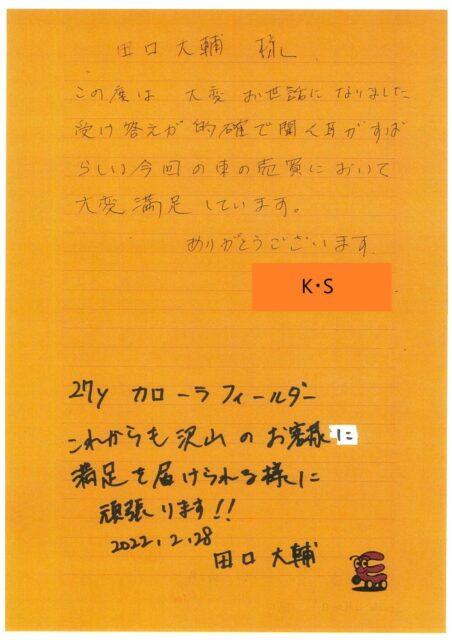 田口大輔 様
この度は 大変 お世話になりました
受け答えが的確で聞く耳がすば
らしい今回の車の売買において
大変満足しています。
ありがとうございます
K・S
27y カローラフィールダー
これからも沢山のお客様に
満足を届けられる様に
頑張ります!!
2022.2.28
田口大輔